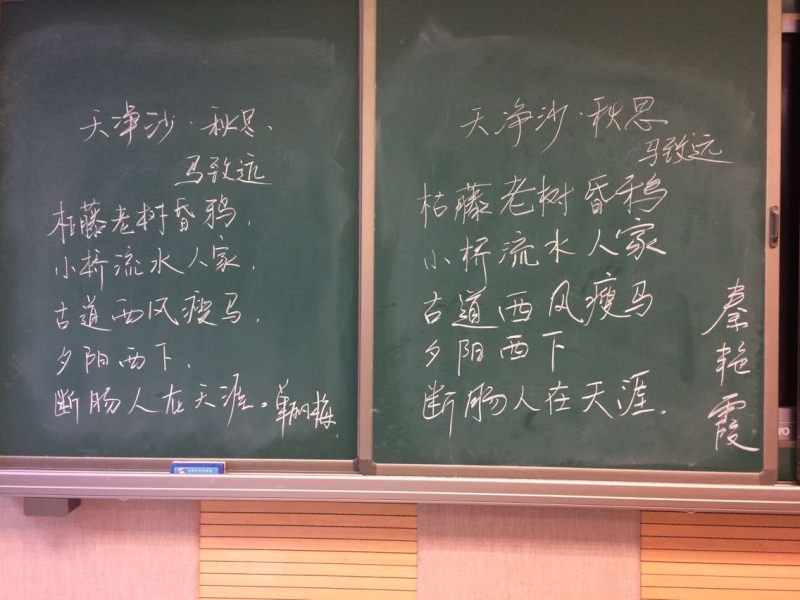 天净沙·秋思、
马致远
枯藤老树昏鸦，
小桥流水人家，
古道西风瘦马，
夕阳西下，
断肠人在天涯。
天净沙·秋思
马致远
枯藤老树昏鸦
小桥流水人家
古道西风瘦马
夕阳西下
断肠人在天涯.
秦艳霞